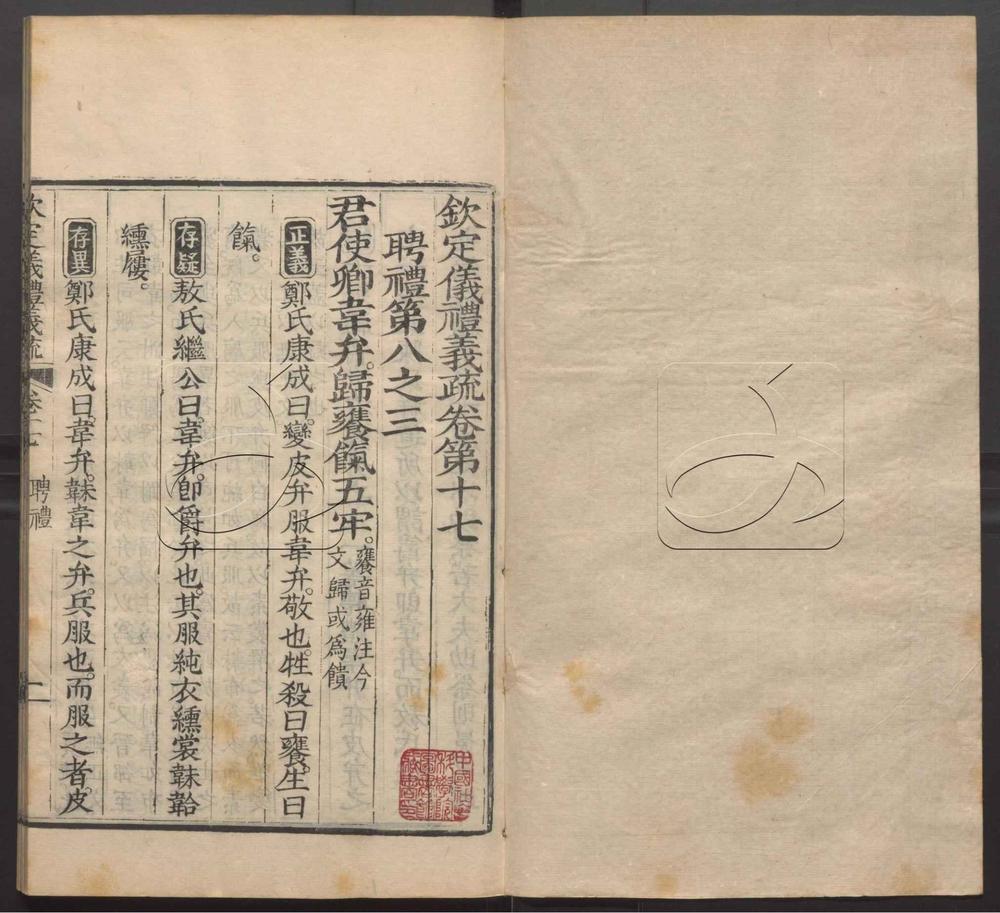 欽定儀禮義疏卷第十七
聘禮第八之三
君使卿韋弁。歸饔餼五牢。饔音雍注今
文歸或爲饋
正義鄭氏康成曰。變皮弁服韋弁。敬也。牲殺曰饔。生曰
餼。
存疑敖氏繼公曰。韋弁。卽爵弁也。其服純衣纁裳韎韐
纁屨。
存異鄭氏康成曰。韋弁。韎韋之弁。兵服也。而服之者。皮
欽定儀禮義疏 卷十七 聘禮 一